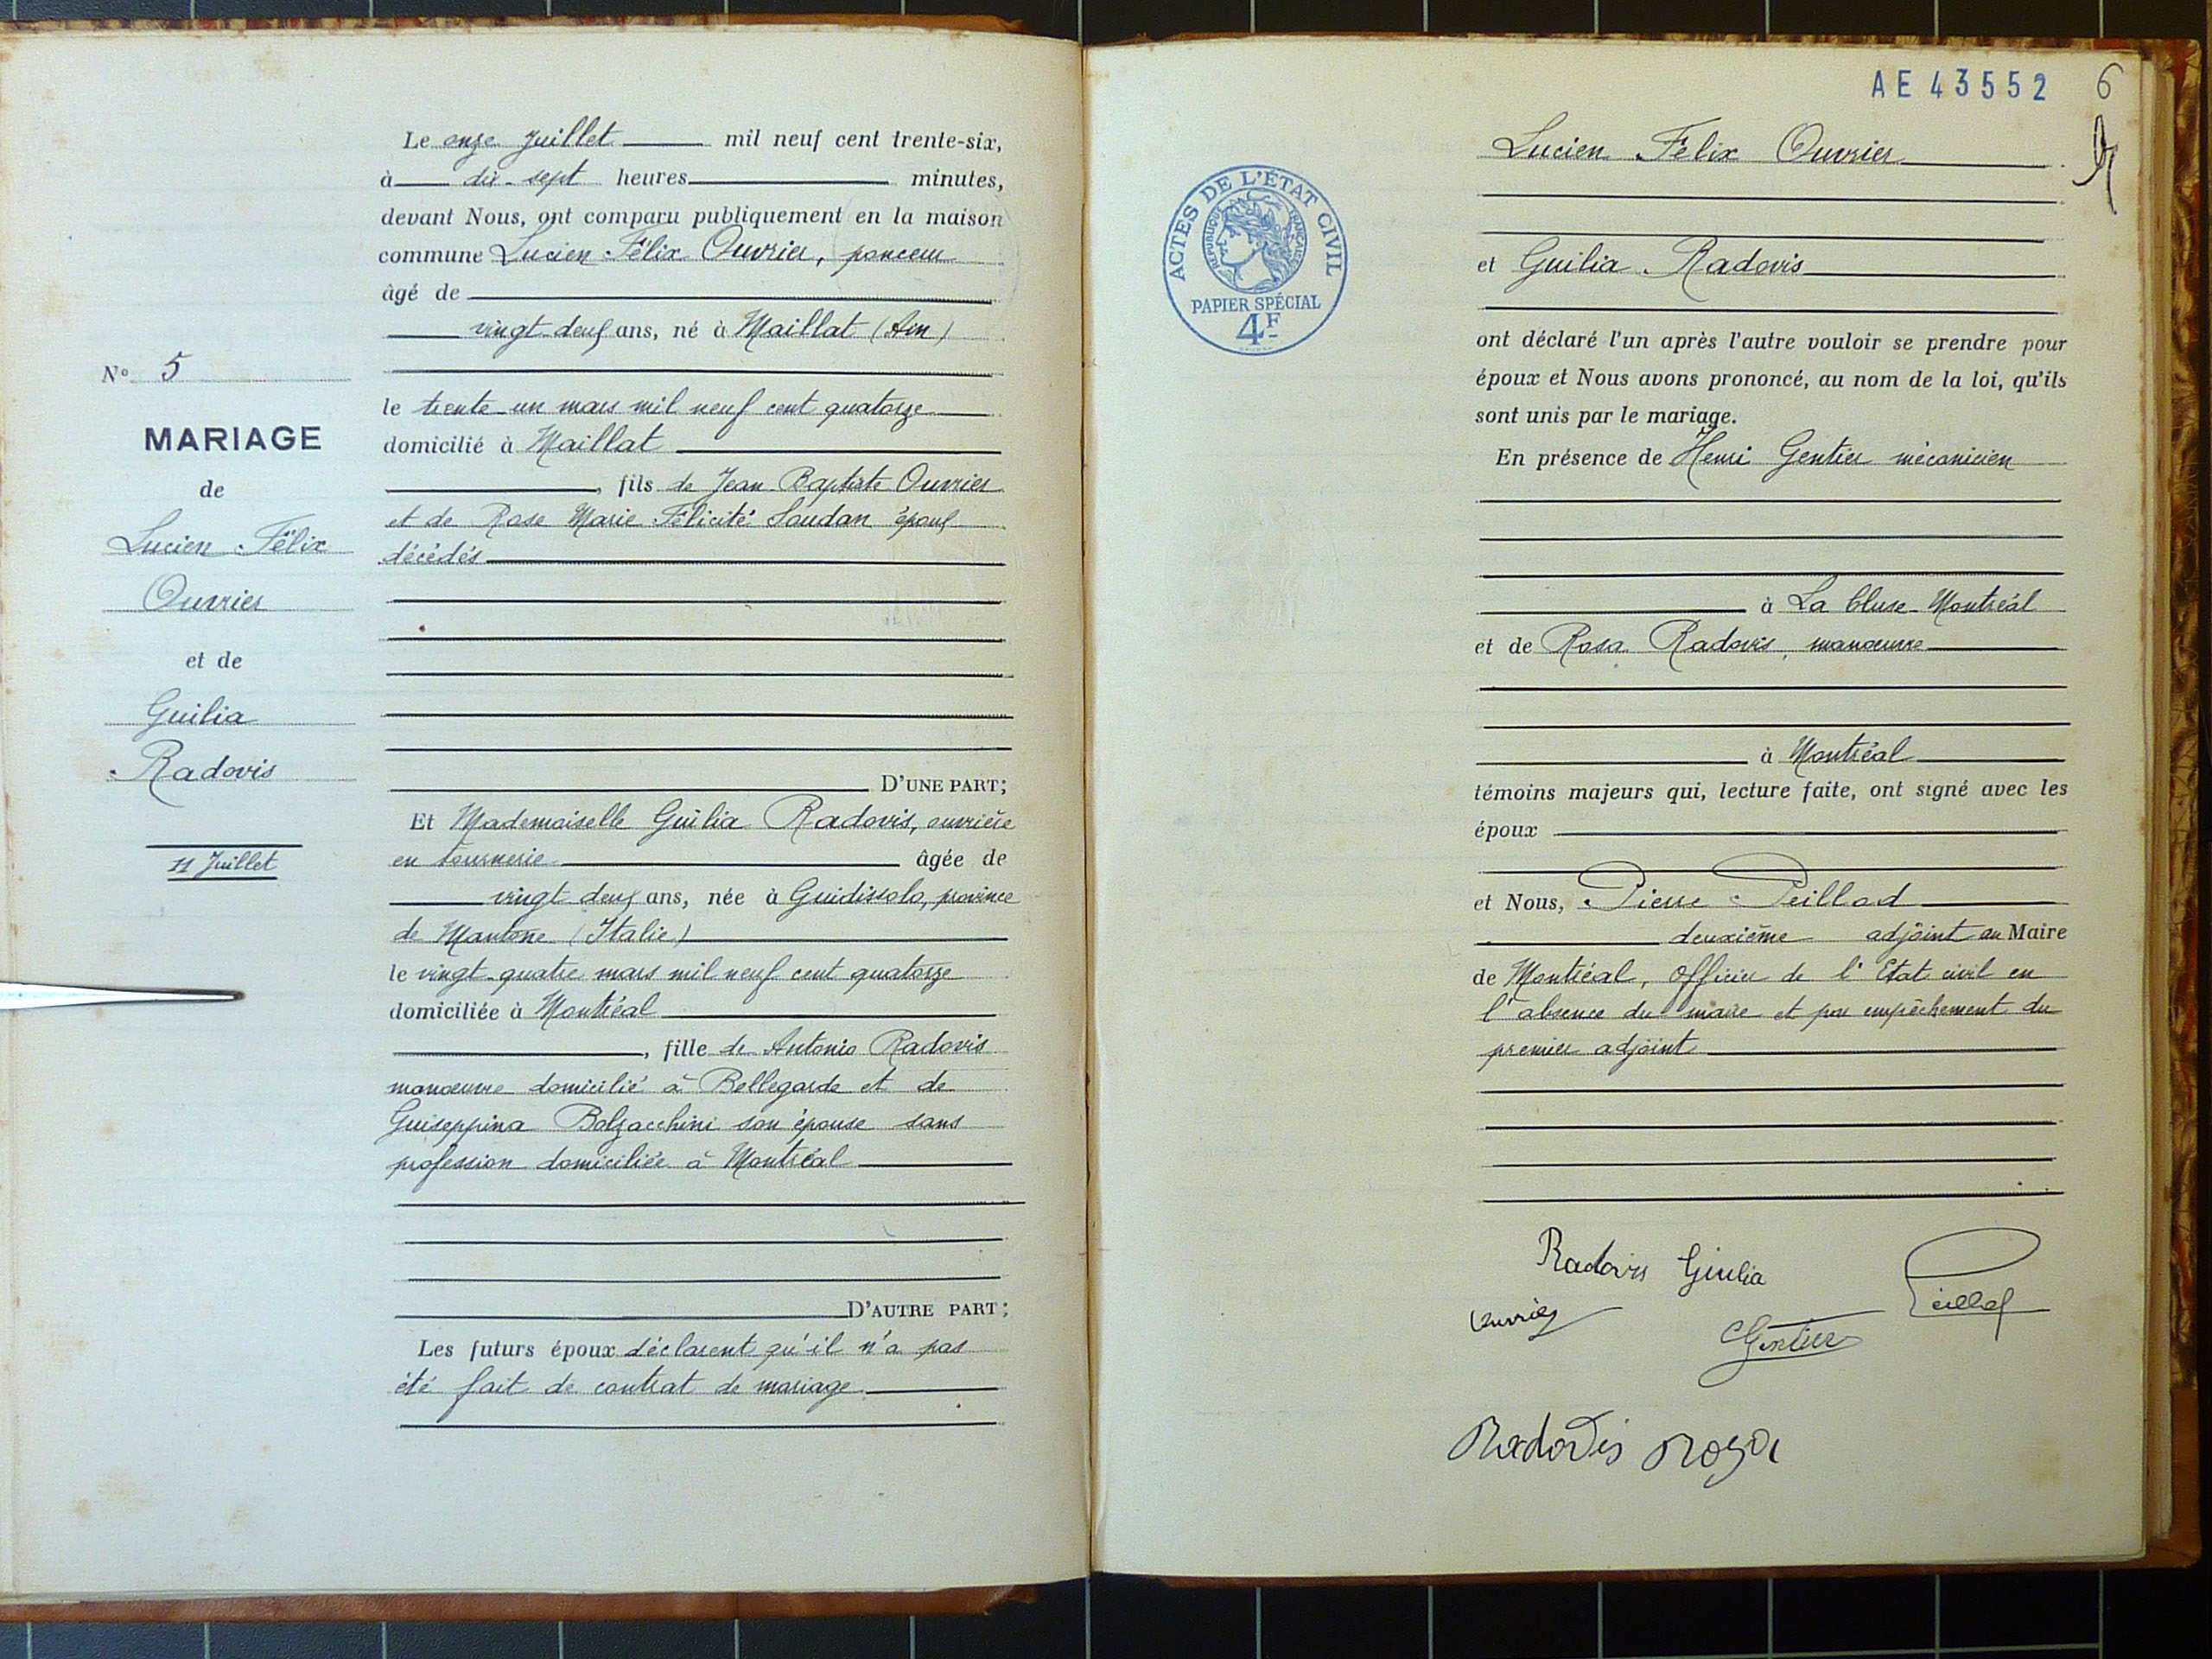 N° 5
MARIAGE
de
Lucien Félix
Ouvrier
et de
Guilia
Radovis
11 Juillet
Le onze Juillet mil neuf cent trente-six,
à dix-sept heures minutes,
devant Nous, ont comparu publiquement en la maison
commune Lucien Félix Ouvrier, ponceur
âgé de
vingt-deux ans, né à Maillat (Ain)
le trente-un mars mil neuf cent quatorze
domicilié à Maillat
, fils de Jean-Baptiste Ouvrier
et de Rose Marie Félicité Soudan époux
décédés
D'UNE PART;
Et Mademoiselle Guilia Radovis, ouvrière
en tournerie âgée de
vingt-deux ans, née à Guidissolo, province
de Mantoue (Italie)
le vingt-quatre mars mil neuf cent quatorze
domiciliée à Montréal
, fille de Antonio Radovis
manœuvre domicilié à Bellegarde et de
Guiseppina Bolzacchini son épouse sans
profession domiciliée à Montréal
D'AUTRE PART;
Les futurs époux déclarent qu'il n'a pas
été fait de contrat de mariage.
AE 43552 6
ACTES DE L'ÉTAT CIVIL
RÉPUBLIQUE FRANÇAISE
PAPIER SPÉCIAL
4F
Lucien Félix Ouvrier
et Guilia Radovis
ont déclaré l'un après l'autre vouloir se prendre pour
époux et Nous avons prononcé, au nom de la loi, qu'ils
sont unis par le mariage.
En présence de Henri Gentier mécanicien
à La Cluse-Montréal
et de Rosa Radovis, manœuvre
à Montréal
témoins majeurs qui, lecture faite, ont signé avec les
époux
et Nous, Pierre Peillod
deuxième adjoint au Maire
de Montréal, Officier de l'Etat civil en
l'absence du maire et par empêchement du
premier adjoint
Radovis Giulia
Ouvrier
Peillod
Gentier
Radovis Rosa